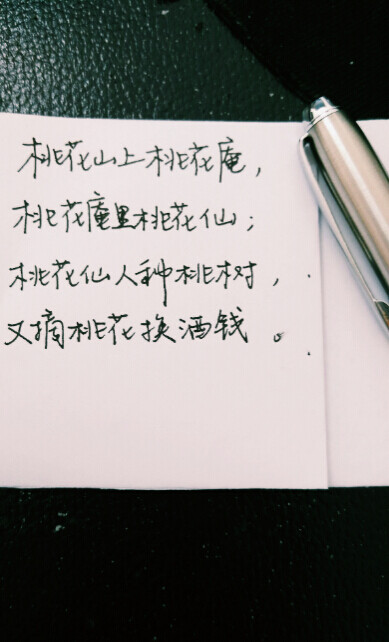 桃花山上桃花庵，
桃花庵里桃花仙；
桃花仙人种桃树，
又摘桃花换酒钱。